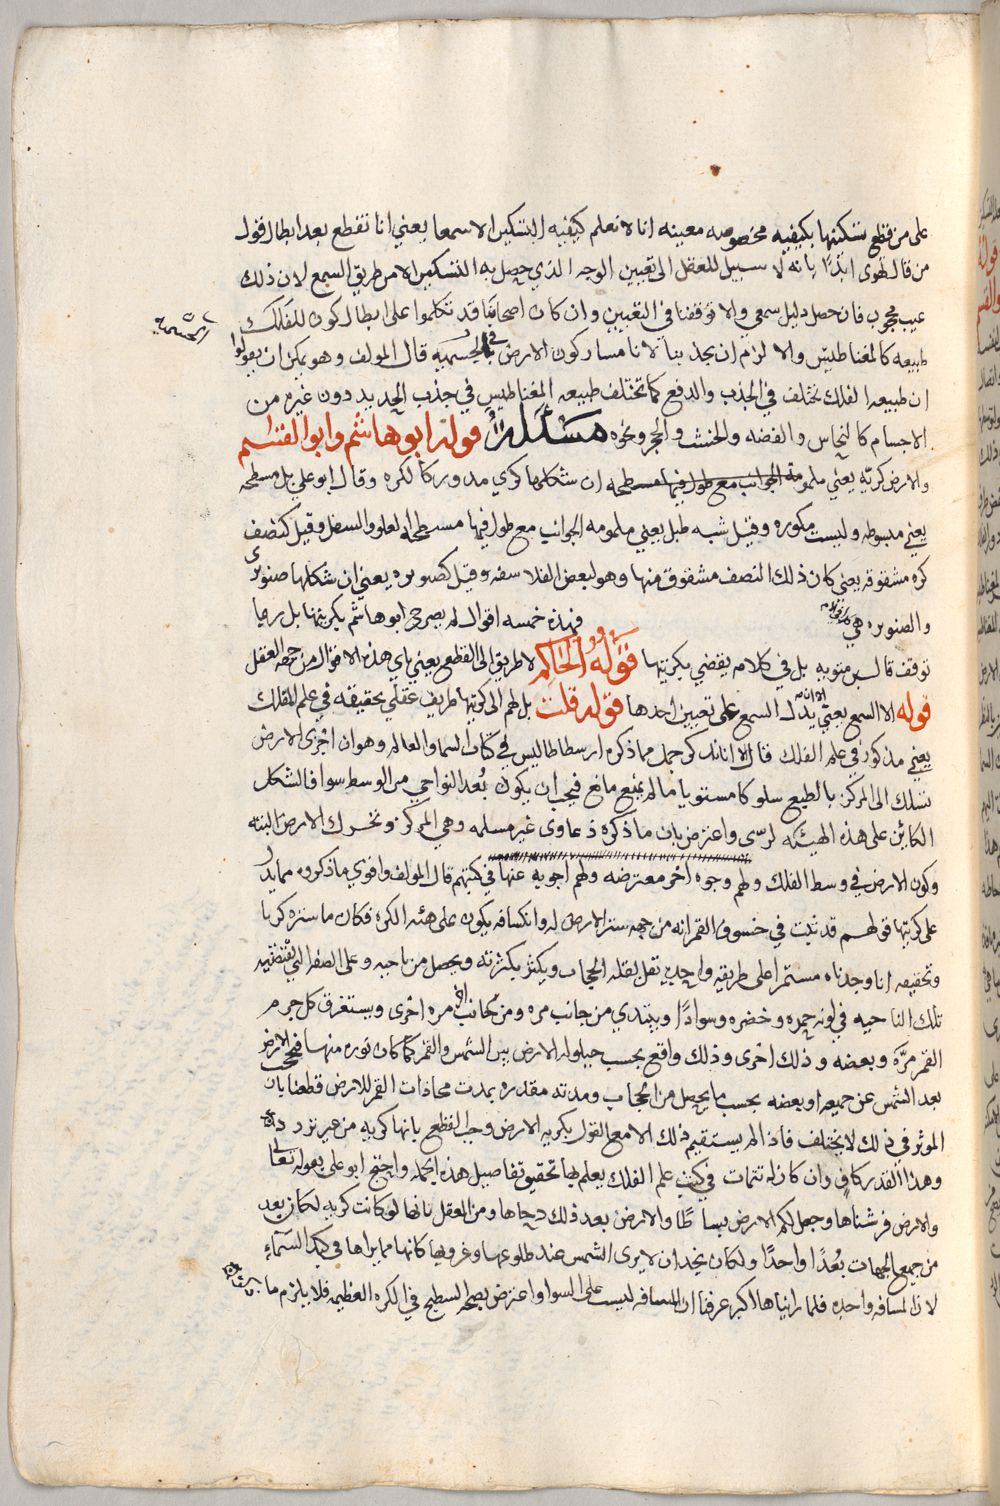 على من قطع بتسكينها بكيفيه مخصوصه معينه انا لا نعلم كيفيه التسكين الا سمعا يعني انا نقطع بعد ابطال قول
من قال تهوى ابدًا بانه لا سبيل للعقل الى تعيين الوجه الذي حصل به التسكين الا من طريق السمع لان ذلك
غيب محجوب فان حصل دليل سمعي والا توقفنا في التعيين وان كان اصحابنا قد تكلموا على ابطال كون للفلك
طبيعه كالمغناطيس والا لزم ان يجذبنا لانا مساركون الارض في الجسميه قال المولف وهو يمكن ان يقولوا
ان طبيعه الفلك تختلف في الجذب والدفع كما تختلف طبيعه المغناطيس في جذب الحديد دون غيره من
الاجسام كالنحاس والفضه والخشب والحجر ونحوه مسئلة قوله ابو هاشم وابو القسم
والارض كريه يعني ململومة الجوانب مع طول فيها مسطحه ان شكلها كري مدور كالكره وقال ابو علي بل مسطحه
يعني مبسوطه وليست مكوره وقيل شبه طبل يعني ململومه الجوانب مع طول فيها مسطحه العلو والسفل وقيل كنصف
كره مشقوقه يعني كان ذلك النصف مشقوق منها وهو لبعض الفلاسفه وقيل كصنوبره يعني ان شكلها صنوبري
والصنوبره هي فهذه خمسه اقوال لم يصرح ابو هاشم بكريتها بل ربما
توقف قال بن متويه بل في كلامه يقضي بكريتها قوله الحاكم لا طريق الى القطع يعني باي هذه الاقوال من جهه العقل
قوله الا السمع يعني يدل السمع على تعيين احدها قوله قلت بل لهم الى كريتها طريق عقلي بحقيقه في علم الفلك
يعني مذكور في علم الفلك قال الا انا نذكر جمل مما ذكره ارسطاطاليس في كتاب السما والعالم وهو ان اجزى الارض
تسلك الى المركز بالطبع سلوكا مستويا ما لم يمنع مانع فيجب ان يكون بُعد النواحي من الوسط سوا فالشكل
الكائن على هذه الهيئه كرسّى واعترض بان ما ذكره دعاوى غير مسلمه وهي المركز وتحرك الارض البته
وكون الارض في وسط الفلك ولهم وجوه اخر معترضه ولهم اجوبه عنها في كتبهم قال المولف واقوى ما ذكروه مما يدل
على كريتها قولهم قد ثبت في خسوف القمر انه من جهه ستر الارض له وانكسافه يكون على هئه الكره فكان ما ستره كريا
وتحقيقه انا وجدناه مستمرا على طريقه واحده تقل بقله الحجاب ويكثر بكثرته ويحصل من ناحيه وعلى الصفه التي تقتضيه
تلك الناحيه في لونه حمره وخضره وسوادًا ويبتدي من جانب مره ومن جانب اخر مره اخرى ويستغرق كل جرم
القمر مرّة وبعضه وذلك اخرى وذلك واقع بحسب حيلوله الارض بين الشمس والقمر كما كان نوره منها فتحجب الارض
بعد الشمس عن جميعه او بعضه بحسب ما يحصل من الحجاب ومدته مقدره بمدت محاذات القمر للارض قطعنا بان
الموثر في ذلك لا يختلف فاذا لم يستقيم ذلك الا مع القول بكريه الارض وجب القطع بانها كريه من غير تردد
وهذا القدر كافٍ وان كان له تتمات في كتب علم الفلك يعلم بها تحقيق تفاصيل هذه الجمله واحتج ابو علي بقوله تعالى
والارض فرشناها وجعل لكم الارض بساطًا والارض بعد ذلك دحاها ومن العقل بانها لو كانت كريه لكان بعد
من جميع الجهات بُعدًا واحدًا ولكان يجب ان لا يرى الشمس عند طلوعها وغروبها كانها مما يراها في كبد السماء
لان المسافه واحده فلما رايناها اكبر عرفنا ان المسافه ليست على السوا واعترض بصحه السطيح في الكره العظيمه فلا يلزم ما